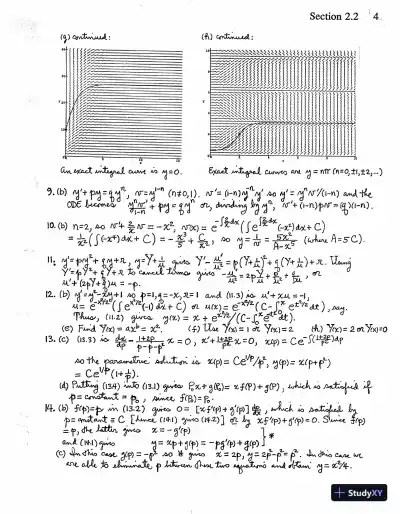 Section 2.2 4
(g) continued:
(h) continued:
An exact integral curve is y=0.
Exact integral curves are y = nπ (n=0,±1,±2,...)
9. (b) y'+py=qyⁿ, v=y¹⁻ⁿ (n≠0,1). v'=(1-n)y⁻ⁿy' so y'=yⁿv'/(1-n) and the
ODE becomes yⁿv'/(1-n) + py = qyⁿ or, dividing by yⁿ, v'+(1-n)pv=(1-n).
10. (b) n=2, so v'+ 2/x v = -x², v(x) = e^(-∫2/x dx) (∫e^(∫2/x dx) (-x²)dx + C)
= 1/x² (∫(-x⁴)dx + C) = -x³/5 + C/x², so y = 1/v = 5x²/(A-x⁵) (where A=5C).
11. y'=py²+qy+r, y=Y+1/u gives Y'-u'/u² = p(Y+1/u)²+q(Y+1/u)+r. Using
Y'=pY²+qY+r to cancel terms gives -u'/u² = 2pY/u + p/u² + q/u, or
u'+(2pY+q)u = -p.
12. (b) y'=y²-xy+1 so p=1, q=-x, r=1 and (11.3) is u'+xu=-1,
Thus, (11.2) gives
(e) Find Y(x)=axᵇ = x².
(f) Use Y(x)=1 or Y(x)=2
(h) Y(x)=2 or Y(x)=0
13. (c) (13.3) is dx/dp - (1+2p)/(p-p-p²) x = 0,
so the parametric solution is x(p) = Ce^(1/p)/p², y(p) = x(p+p²)
= Ce^(1/p)(1+1/p).
(d) Putting (13.4) into (13.1) gives P₀x+g(P₀) = x f(P)+g(P), which is satisfied if
p=constant = P₀, since f(P₀)=P₀.
14. (b) f(p)=p in (13.2) gives 0=[x f'(p)+g'(p)] dp/dx, which is satisfied by
p=constant=C [hence (14.1) gives (14.2)] or by x f'(p)+g'(p)=0. Since f(p)
=p, the latter gives x = -g'(p)
and (14.1) gives y = xp+g(p) = -pg'(p)+g(p) } *
(c) In this case g(p)=-p² so * gives x=2p, y=2p²-p²=p². In this case we
are able to eliminate p between these two equations and obtain y=x²/4.
StudyXY